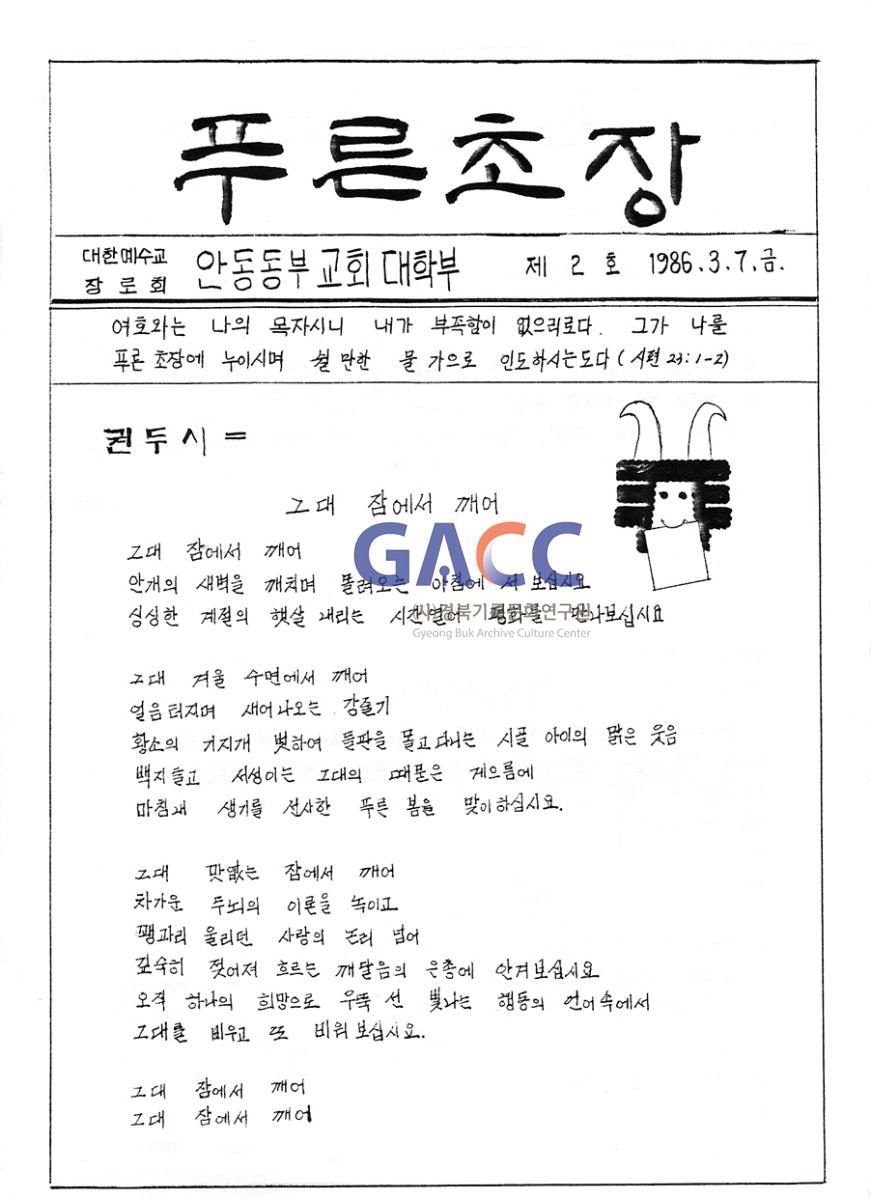 푸른초장
대한예수교
장로회
안동동부교회대학부 제 2 호 1986.3.7.금.
여호와는 나의 목자시니 내가 부족함이 없으리로다. 그가 나를
푸른 초장에 누이시며 쉴 만한 물 가으로 인도하시는도다 (시편 23:1-2)
권두시 =
그대 잠에서 깨어
그대 잠에서 깨어
안개의 새벽을 깨치며 몰려오는 아침에 서 보십시요
싱싱한 계절의 햇살 내리는 시간 열어 평화를 만나보십시요
GACC
(사)경북기록문화연구원
Gyeong Buk Archive Culture Center
그대 겨울 수면에서 깨어
얼음 터지며 새어나오는 강줄기
황소의 기지개 벗하여 들판을 몰고다니는 시골 아이의 맑은 웃음
백지들고 서성이는 그대의 때묻은 게으름에
마침내 생기를 선사한 푸른 봄을 맞이하십시요.
그대 맛없는 잠에서 깨어
차가운 두뇌의 이론을 녹이고
꽹과리 울리던 사랑의 논리 넘어
깊숙히 젖어져 흐르는 깨달음의 은총에 안겨보십시요
오직 하나의 희망으로 우뚝 선 빛나는 행동의 언어속에서
그대를 비우고 또 비워보십시요.
그대 잠에서 깨어
그대 잠에서 깨어